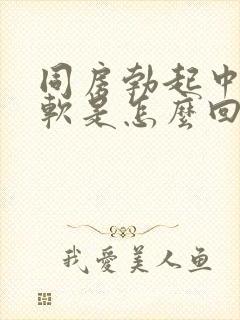 同房勃起中
軟是怎麼回
我愛美人鱼